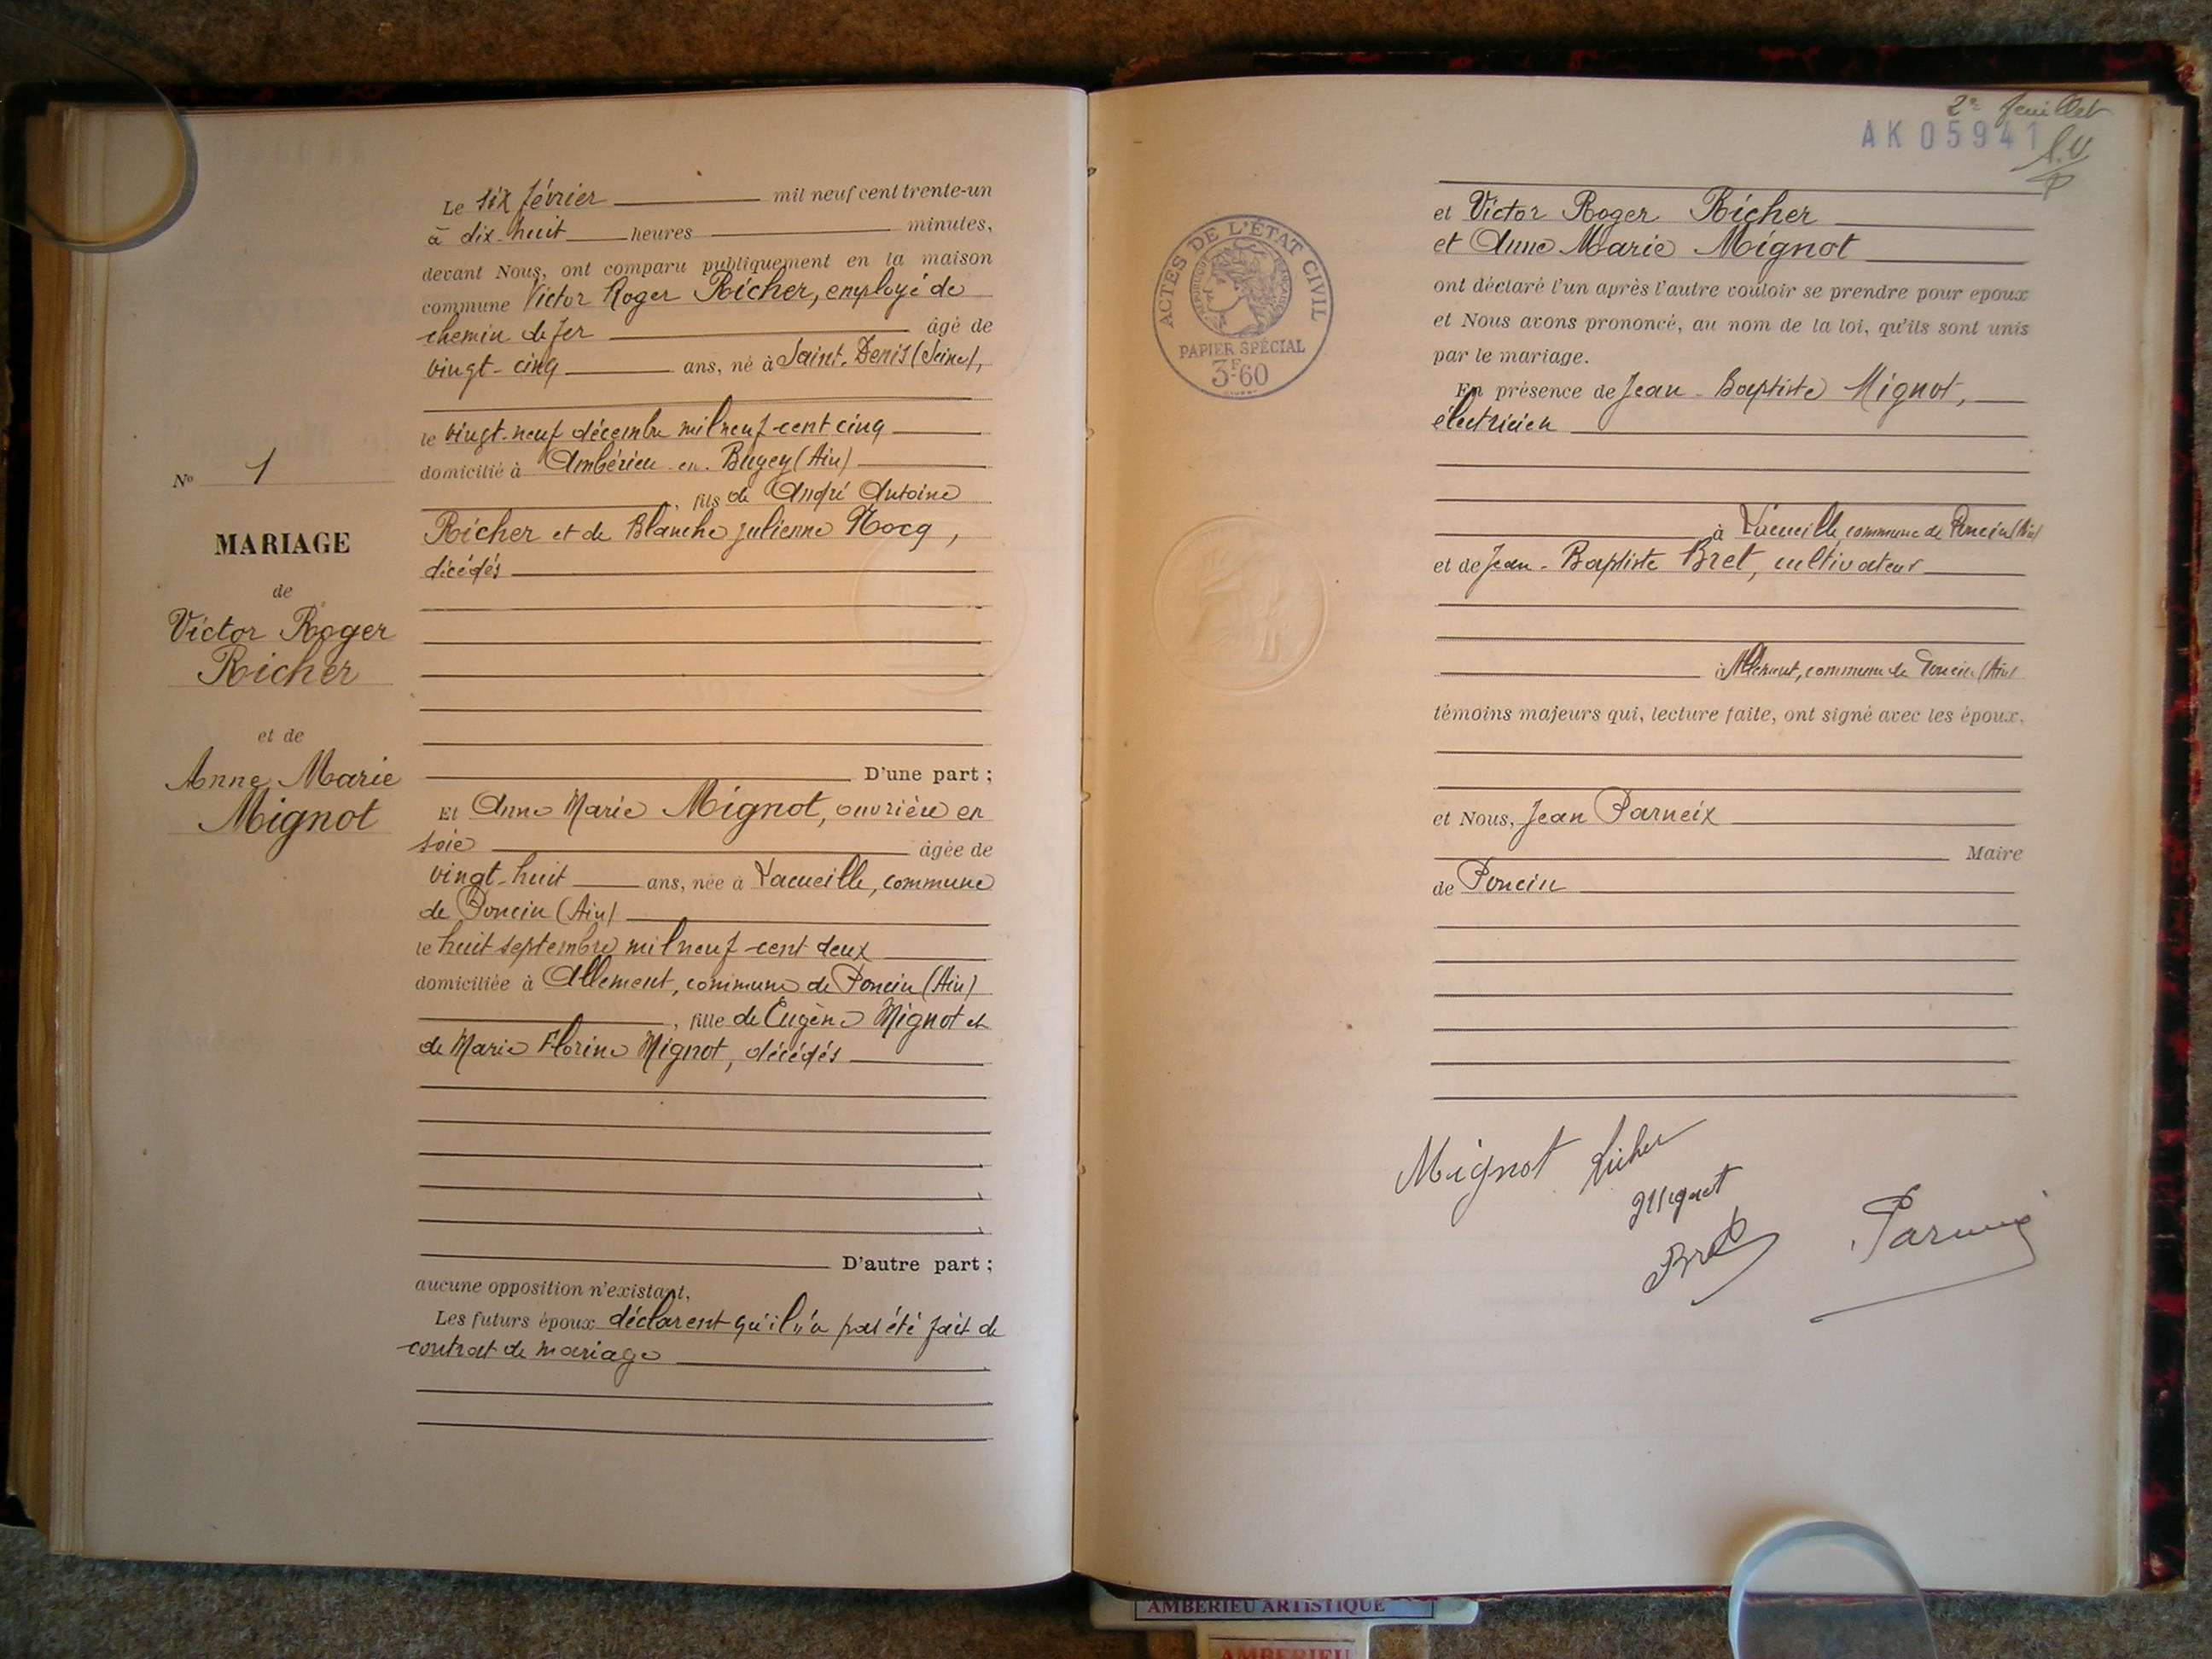 Le six février mil neuf cent trente-un
à dix-huit heures minutes,
devant Nous, ont comparu publiquement en la maison
commune Victor Roger Richer, employé de
chemin de fer âgé de
vingt-cinq ans, né à Saint-Denis (Seine),
le vingt-neuf décembre mil neuf cent cinq
domicilié à Ambérieu-en-Bugey (Ain)
, fils de André Antoine
Richer et de Blanche Julienne Nocq,
décédés
D'une part ;
Et Anne Marie Mignot, ouvrière en
soie âgée de
vingt-huit ans, née à Lacueille, commune
de Poncin (Ain)
le huit septembre mil neuf cent deux
domiciliée à Allement, commune de Poncin (Ain)
, fille de Eugène Mignot et
de Marie Florine Mignot, décédés
D'autre part ;
aucune opposition n'existant.
Les futurs époux déclarent qu'il n'a pas été fait de
contrat de mariage
No 1
MARIAGE
de
Victor Roger
Richer
et de
Anne Marie
Mignot
2e feuillet
AK 05941
ACTES DE L'ÉTAT CIVIL
RÉPUBLIQUE FRANÇAISE
PAPIER SPÉCIAL
3F60
et Victor Roger Richer
et Anne Marie Mignot
ont déclaré l'un après l'autre vouloir se prendre pour époux
et Nous avons prononcé, au nom de la loi, qu'ils sont unis
par le mariage.
En présence de Jean-Baptiste Mignot,
électricien
à Lacueille, commune de Poncin (Ain)
et de Jean-Baptiste Bret, cultivateur
à Allement, commune de Poncin (Ain)
témoins majeurs qui, lecture faite, ont signé avec les époux.
et Nous, Jean Parneix
Maire
de Poncin
Mignot Richer
Mignot
Bret
Parneix
AMBERIEU ARTISTIQUE
AMBERIEU